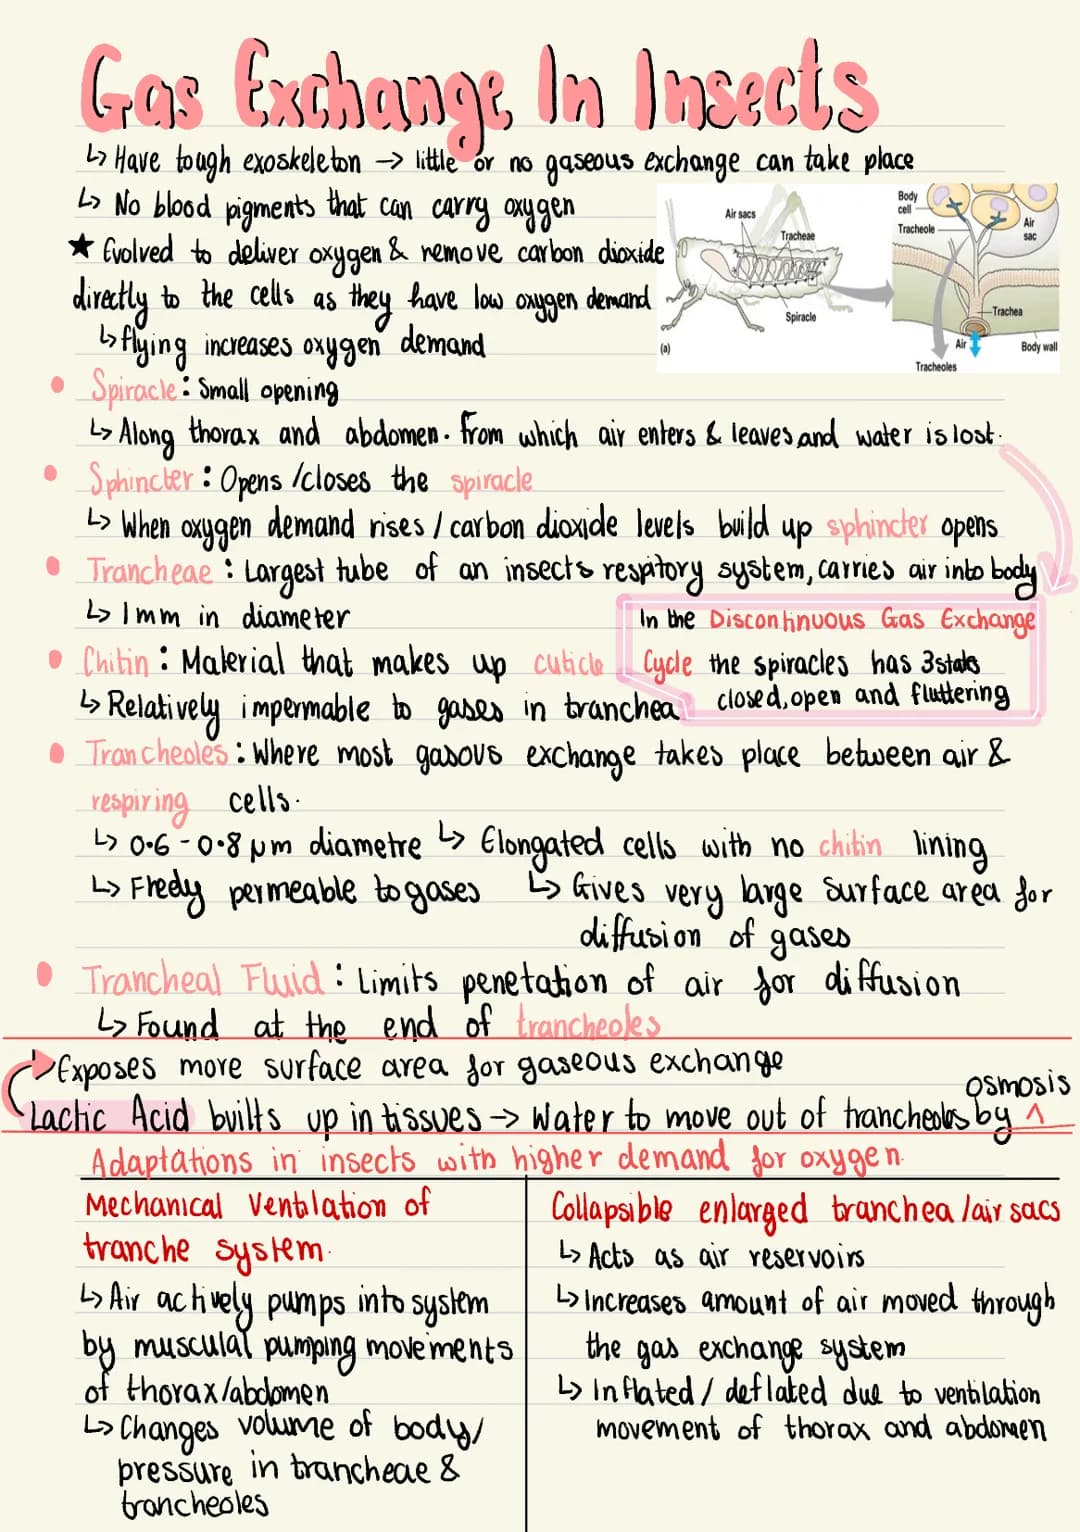 Gas Exchange In Insects
↳ Have tough exoskeleton → little or no gaseous exchange can take place
↳ No blood pigments that can carry oxygen
★ Evolved to deliver oxygen & remove carbon dioxide
directly to the cells as they have low oxygen demand
↳ flying increases oxygen demand
Air sacs
Tracheae
Spiracle
(a)
Body
cell
Tracheole
Air
sac
Trachea
Air
Body wall
Tracheoles
• Spiracle: Small opening
↳ Along thorax and abdomen. From which air enters & leaves and water is lost.
• Sphincter: Opens /closes the spiracle
↳ When oxygen demand rises / carbon dioxide levels build up sphincter opens
• Trancheae: Largest tube of an insects respitory system, carries air into body
↳ 1mm in diameter
In the Discontinuous Gas Exchange
Cycle the spiracles has 3 states
closed, open and fluttering
• Chitin: Material that makes up cuticle
↳ Relatively impermable to gases in tranchea
• Trancheoles: Where most gasous exchange takes place between air &
respiring cells.
↳ 0.6-0.8 µm diametre ↳ Elongated cells with no chitin lining
↳ Freely permeable to gases ↳ Gives very large surface area for
diffusion of gases
• Trancheal Fluid: Limits penetation of air for diffusion
↳ Found at the end of trancheoles
Exposes more surface area for gaseous exchange
Lactic Acid builts up in tissues → Water to move out of trancheoles by ^ osmosis
Adaptations in insects with higher demand for oxygen.
Mechanical Ventilation of
tranche system.
↳ Air actively pumps into system
by musculal pumping movements
of thorax/abdomen
↳ Changes volume of body/
pressure in trancheae &
trancheoles
Collapsible enlarged tranchea /air sacs
↳ Acts as air reservoirs
↳ Increases amount of air moved through
the gas exchange system
↳ Inflated / deflated due to ventilation
movement of thorax and abdomen